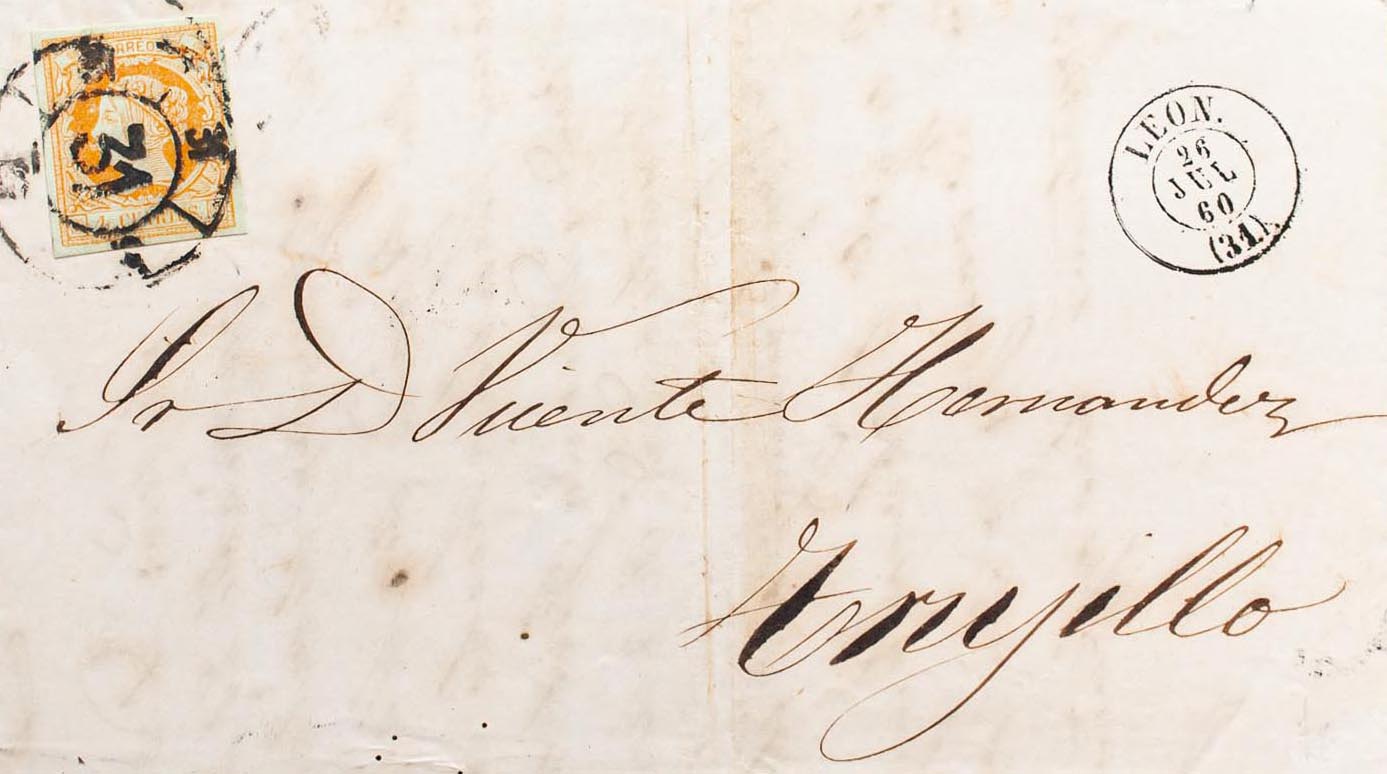 CORREOS
31
4 CUARTOS
LEON.
26
JUL
60
(31)
Sr D Vicente Hernandez
Trujillo